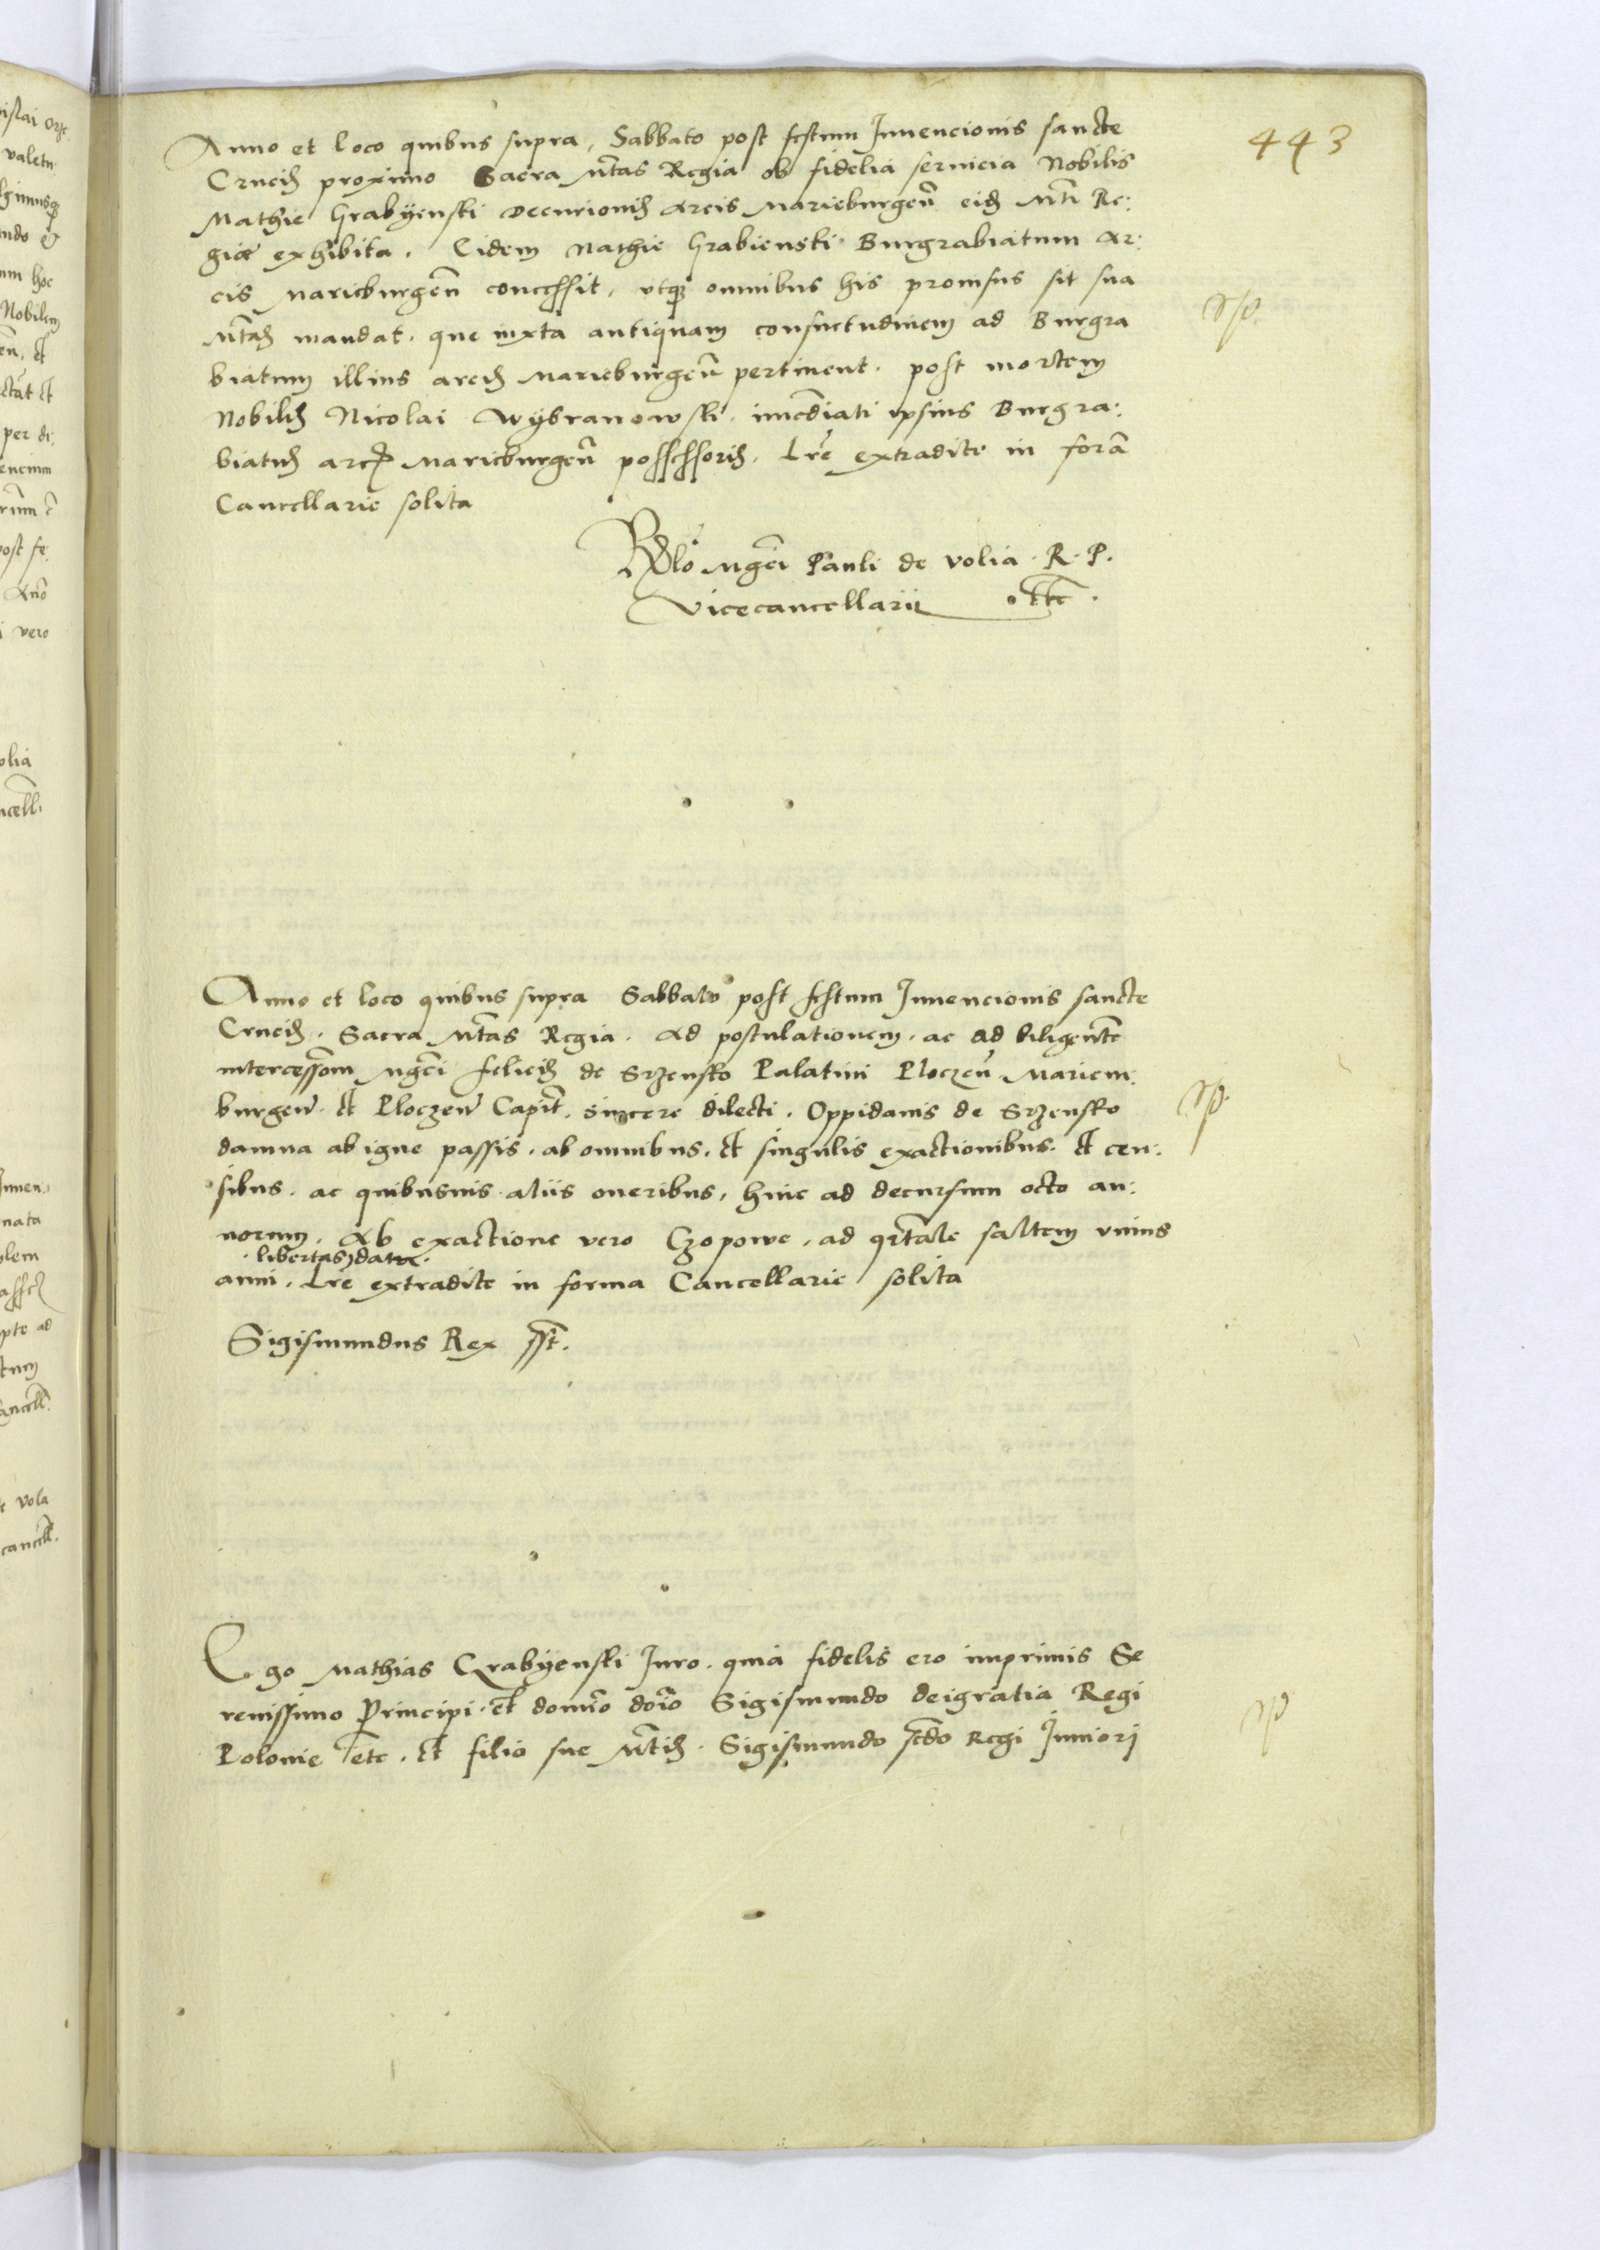 443
Anno et loco quibus supra, Sabbato post festum Inuencionis sancte
Crucis proximo Sacra Mtas Regia ob fidelia seruicia Nobilis
Mathie Grabyenski Decurionis Arcis Marieburgen eid Mti Re:
gie exhibita. Eidem Mathie Grabienski Burgrabiatum Ar:
cis Marieburgen concessit, vtque omnibus his prouisus sit sua
Mtas mandat. que iuxta antiquam consuetudinem ad Burgra
biatum illius arcis Marieburgen pertinent. post mortem
Nobilis Nicolai Wybranowski. imediati ipsius Burgra:
biatus arcis Marieburgen possessoris. Lre extradite in fora
Cancellarie solita
Rlo Mgci Pauli de Volia. R. P.
Vicecancellarii etc.
Anno et loco quibus supra Sabbato post festum Inuencionis sancte
Crucis. Sacra Mtas Regia. Ad postulationem. ac ad diligentem
intercessiom Mgci Felicis de Srzensko Palatini Ploczen Mariem:
burgen. et Ploczen Capit. sincere dilecti. Oppidanis de Srzensko
damna ab igne passis. ab omnibus. et singulis exactionibus. et cen:
sibus. ac quibusuis aliis oneribus, hinc ad decursum octo an:
norum. Ab exactione vero Czopowe. ad qrtale saltem vnius
libertas data.
anni. Lre extradite in forma Cancellarie solita
Sigismundus Rex sst.
Ego Mathias Grabyenski Iuro. quia fidelis ero imprimis Se
renissimo Principi. et domino doio Sigismundo deigratia Regi
Polonie etc. et filio sue Mtis. Sigismundo scdo Regi Iuniori